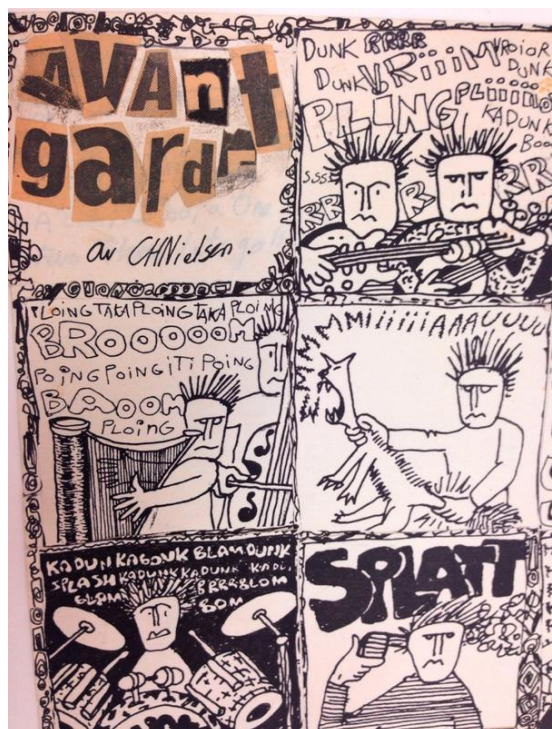 AVAnt
garde
av CHNielsen.
DUNK RRRR
DUNK VRiiiM
PLING
KADUNK
Boo
S.SSS
PLOiNG TAKA PLOiNG TAKA PLOiNG
BROOOOOM
POiNG POiNG iTi POiNG
BAOOM
PLOiNG
MMMMiiiiiiAAAUUUU
KADUNKAGONK BLAMDUNK
SPLASH KADUNKKADUNK KADU
BRRRBLOM
BOM
SPLATT